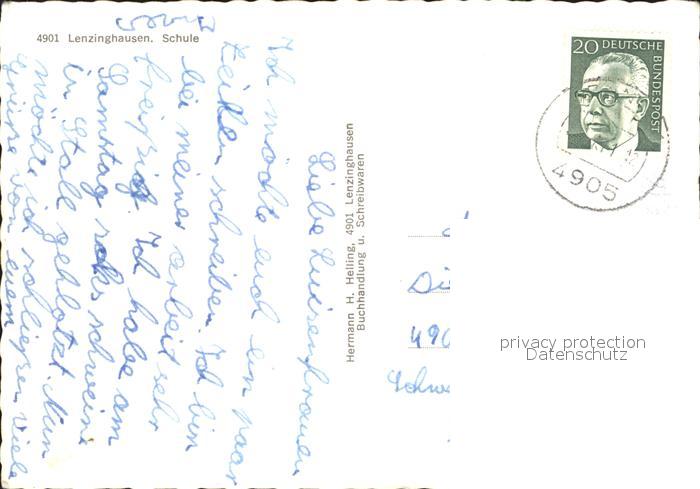 4901 Lenzinghausen. Schule
Liebe Luisenfrauen
Ich möchte euch ein paar
Zeilen schreiben. Ich bin
bei meiner arbeit sehr
freißig. Ich habe am
Samstag sechs schweine
in Stall geklotzt. Nun
möchte ich schließen viele
Grüße von euer
Hermann H. Helling, 4901 Lenzinghausen
Buchhandlung u. Schreibwaren
20 DEUTSCHE
BUNDESPOST
4905
Di
490
Schw
privacy protection
Datenschutz